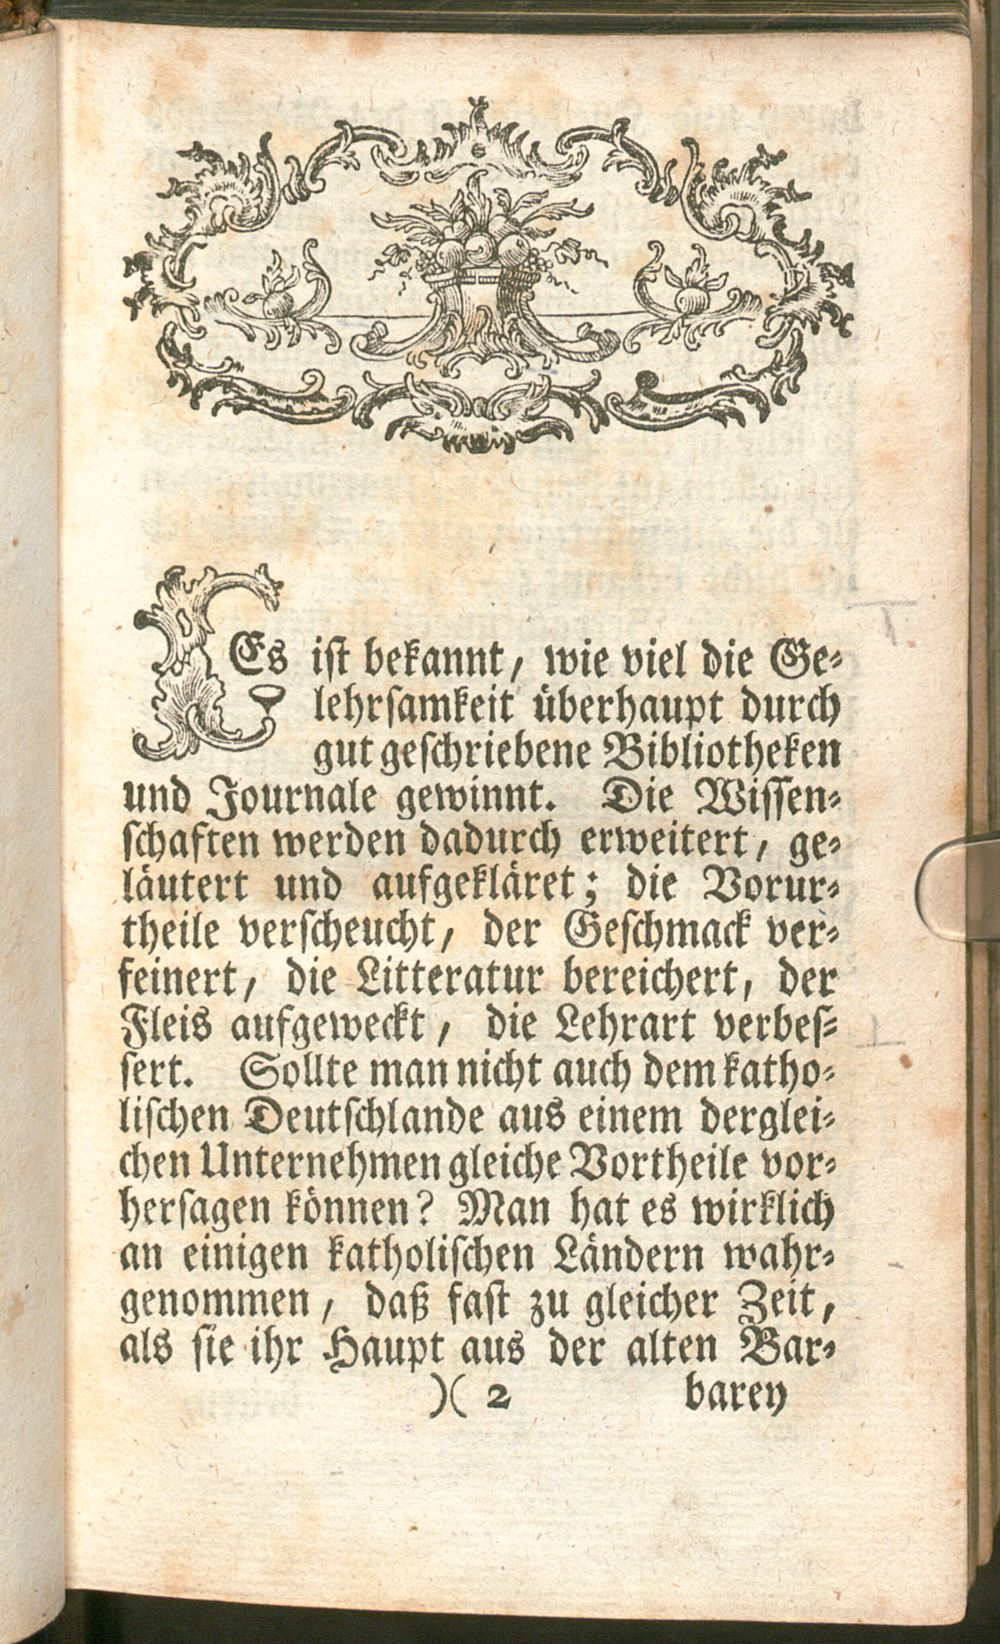 Es iſt bekannt, wie viel die Ge⸗
lehrſamkeit überhaupt durch
gut geſchriebene Bibliotheken
und Journale gewinnt. Die Wiſſen⸗
ſchaften werden dadurch erweitert, ge⸗
läutert und aufgekläret; die Vorur⸗
theile verſcheucht, der Geſchmack ver⸗
feinert, die Litteratur bereichert, der
Fleis aufgeweckt, die Lehrart verbeſ⸗
ſert. Sollte man nicht auch dem katho⸗
liſchen Deutſchlande aus einem derglei⸗
chen Unternehmen gleiche Vortheile vor⸗
herſagen können? Man hat es wirklich
an einigen katholiſchen Ländern wahr⸗
genommen, daß faſt zu gleicher Zeit,
als ſie ihr Haupt aus der alten Bar⸗
)( 2 barey